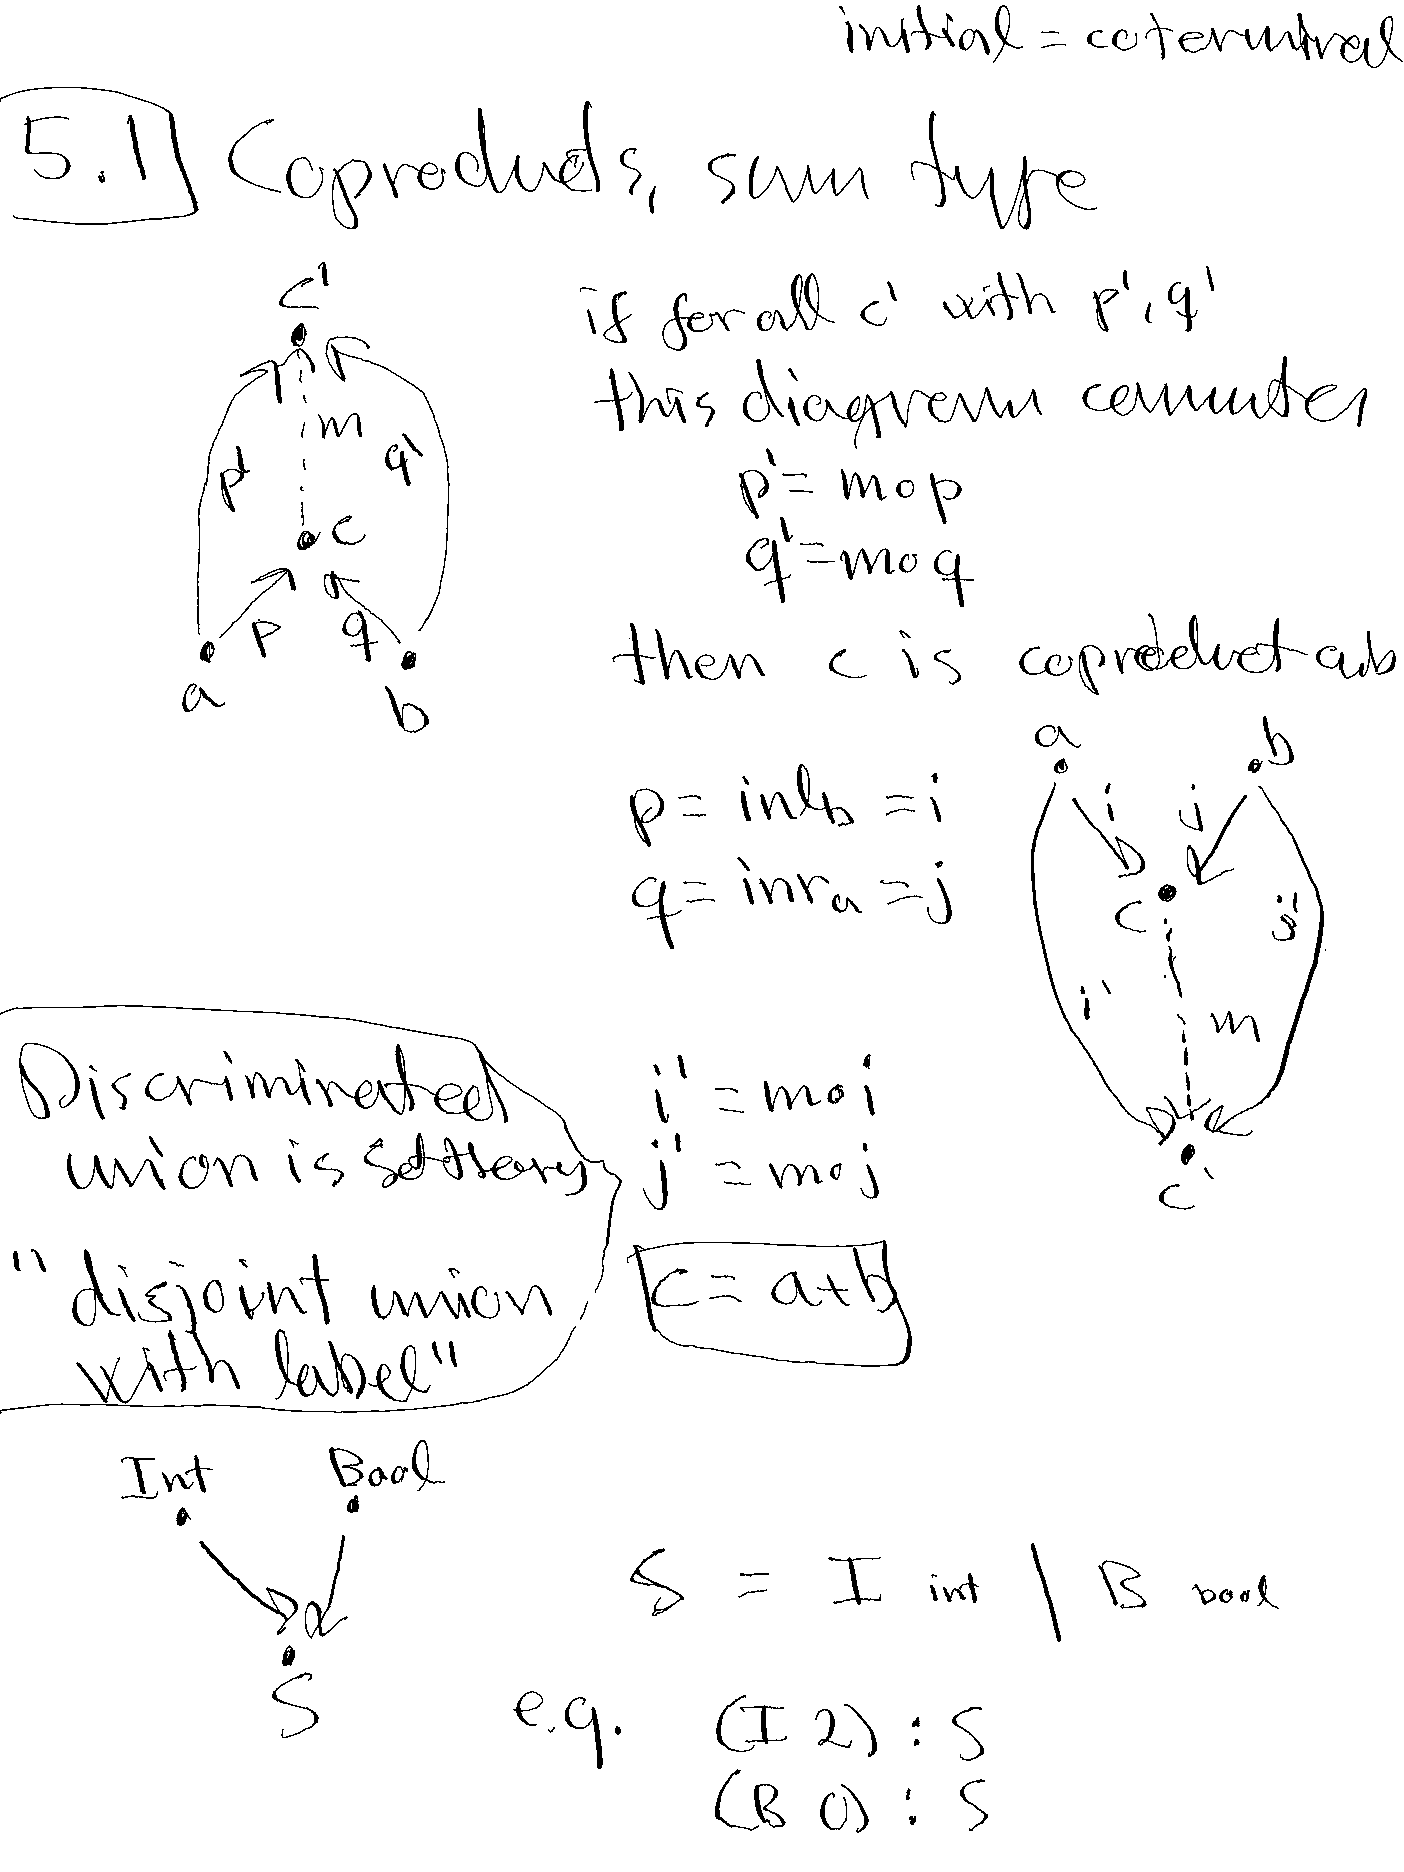 initial = coterminal
5.1 Coproducts, sum type
c'
if for all c' with p', q'
this diagram commutes
m
p'
q'
p' = m∘p
c
q' = m∘q
p
q
then c is coproduct aub
a
b
a
b
p = inl_b = i
i
j
q = inr_a = j
c
j'
i'
m
Discriminated
union is settheory
"disjoint union
with label"
i' = m∘i
j' = m∘j
c'
c = a+b
Int
Bool
S
S = I int | B bool
e.g. (I 2) : S
(B 0) : S